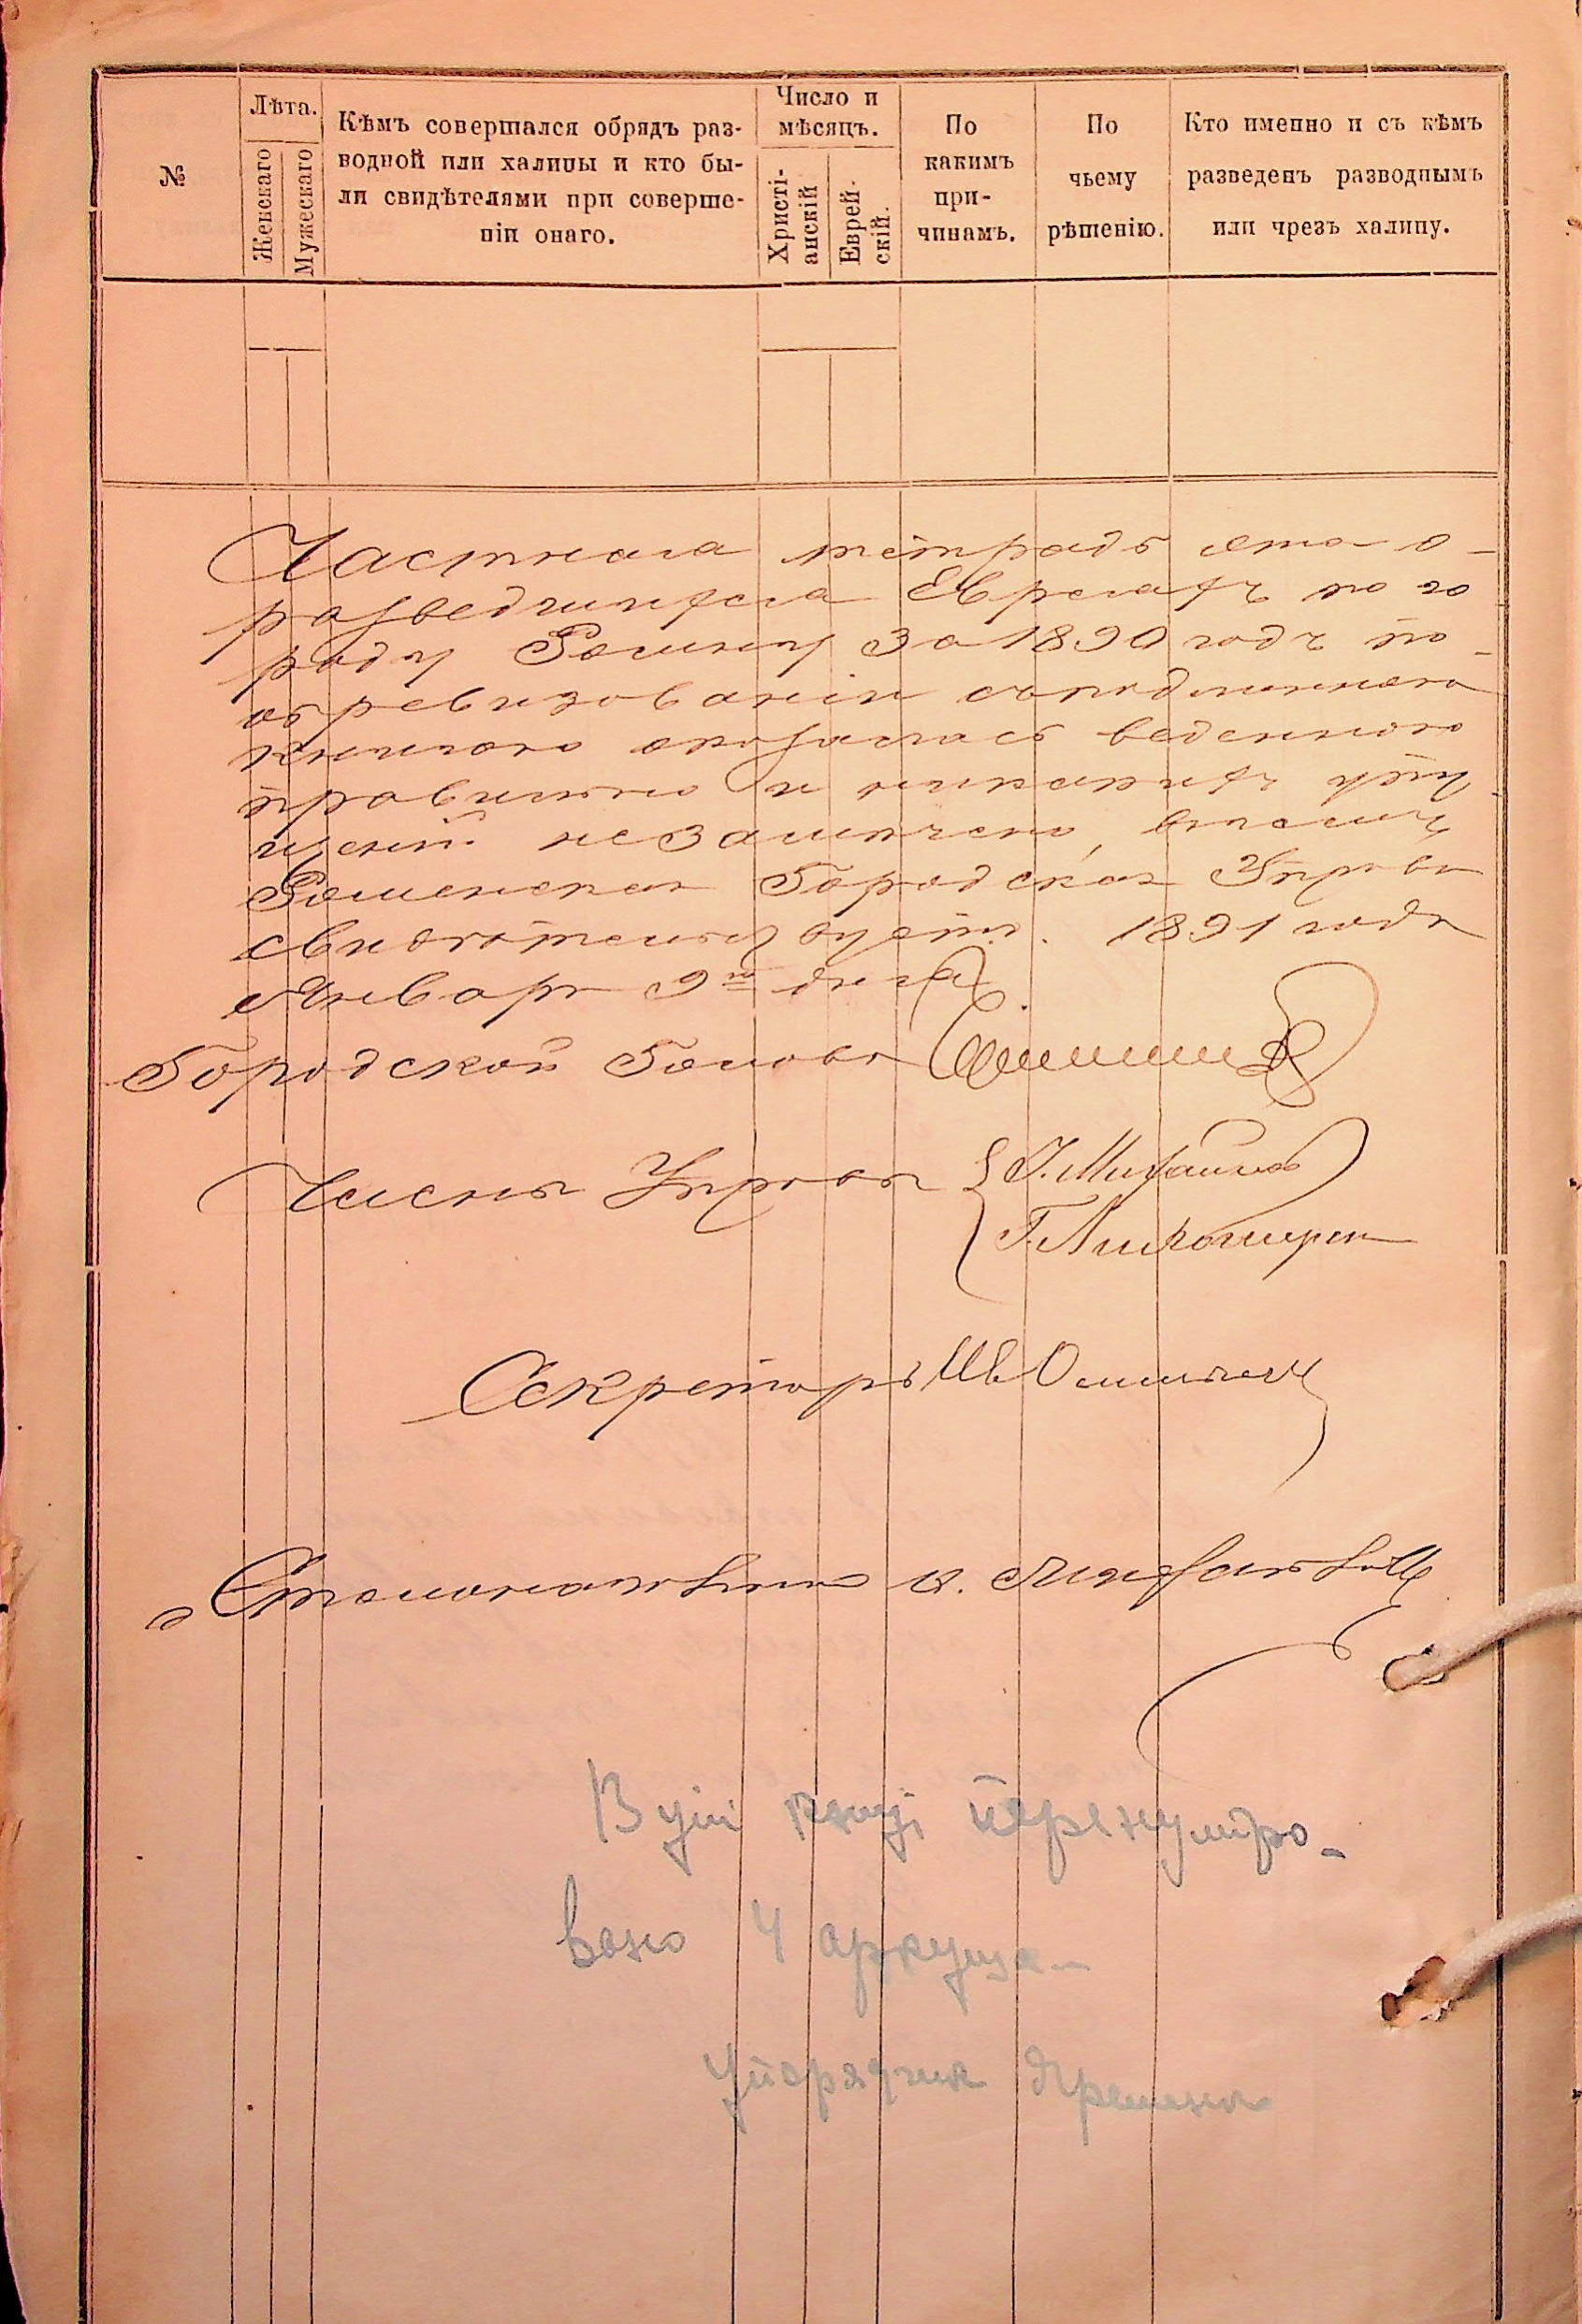 №
Лѣта.
Женскаго
Мужескаго
Кѣмъ совершался обрядъ раз-
водной или халицы и кто бы-
ли свидѣтелями при соверше-
ніи онаго.
Число и
мѣсяцъ.
Христі-
анскій
Еврей-
скій.
По
какимъ
при-
чинамъ.
По
чьему
рѣшенію.
Кто именно и съ кѣмъ
разведенъ разводнымъ
или чрезъ халицу.
Частная тетрадь эта о
разведшихся Евреяхъ по го
роду Ромну за 1890 годъ по
обревизованіи съ подлинною
книгою оказалась веденною
правильно и никакихъ упу
щеній не замѣчено, въ чемъ
Роменская Городская Управа
свидѣтельствуетъ. 1891 года
Января 9го дня.
Городской Голова
Члены Управы
Секретарь Ив
Столоначальникъ
В цій книзі перенуміро-
вано 4 аркуша
Упорядчик